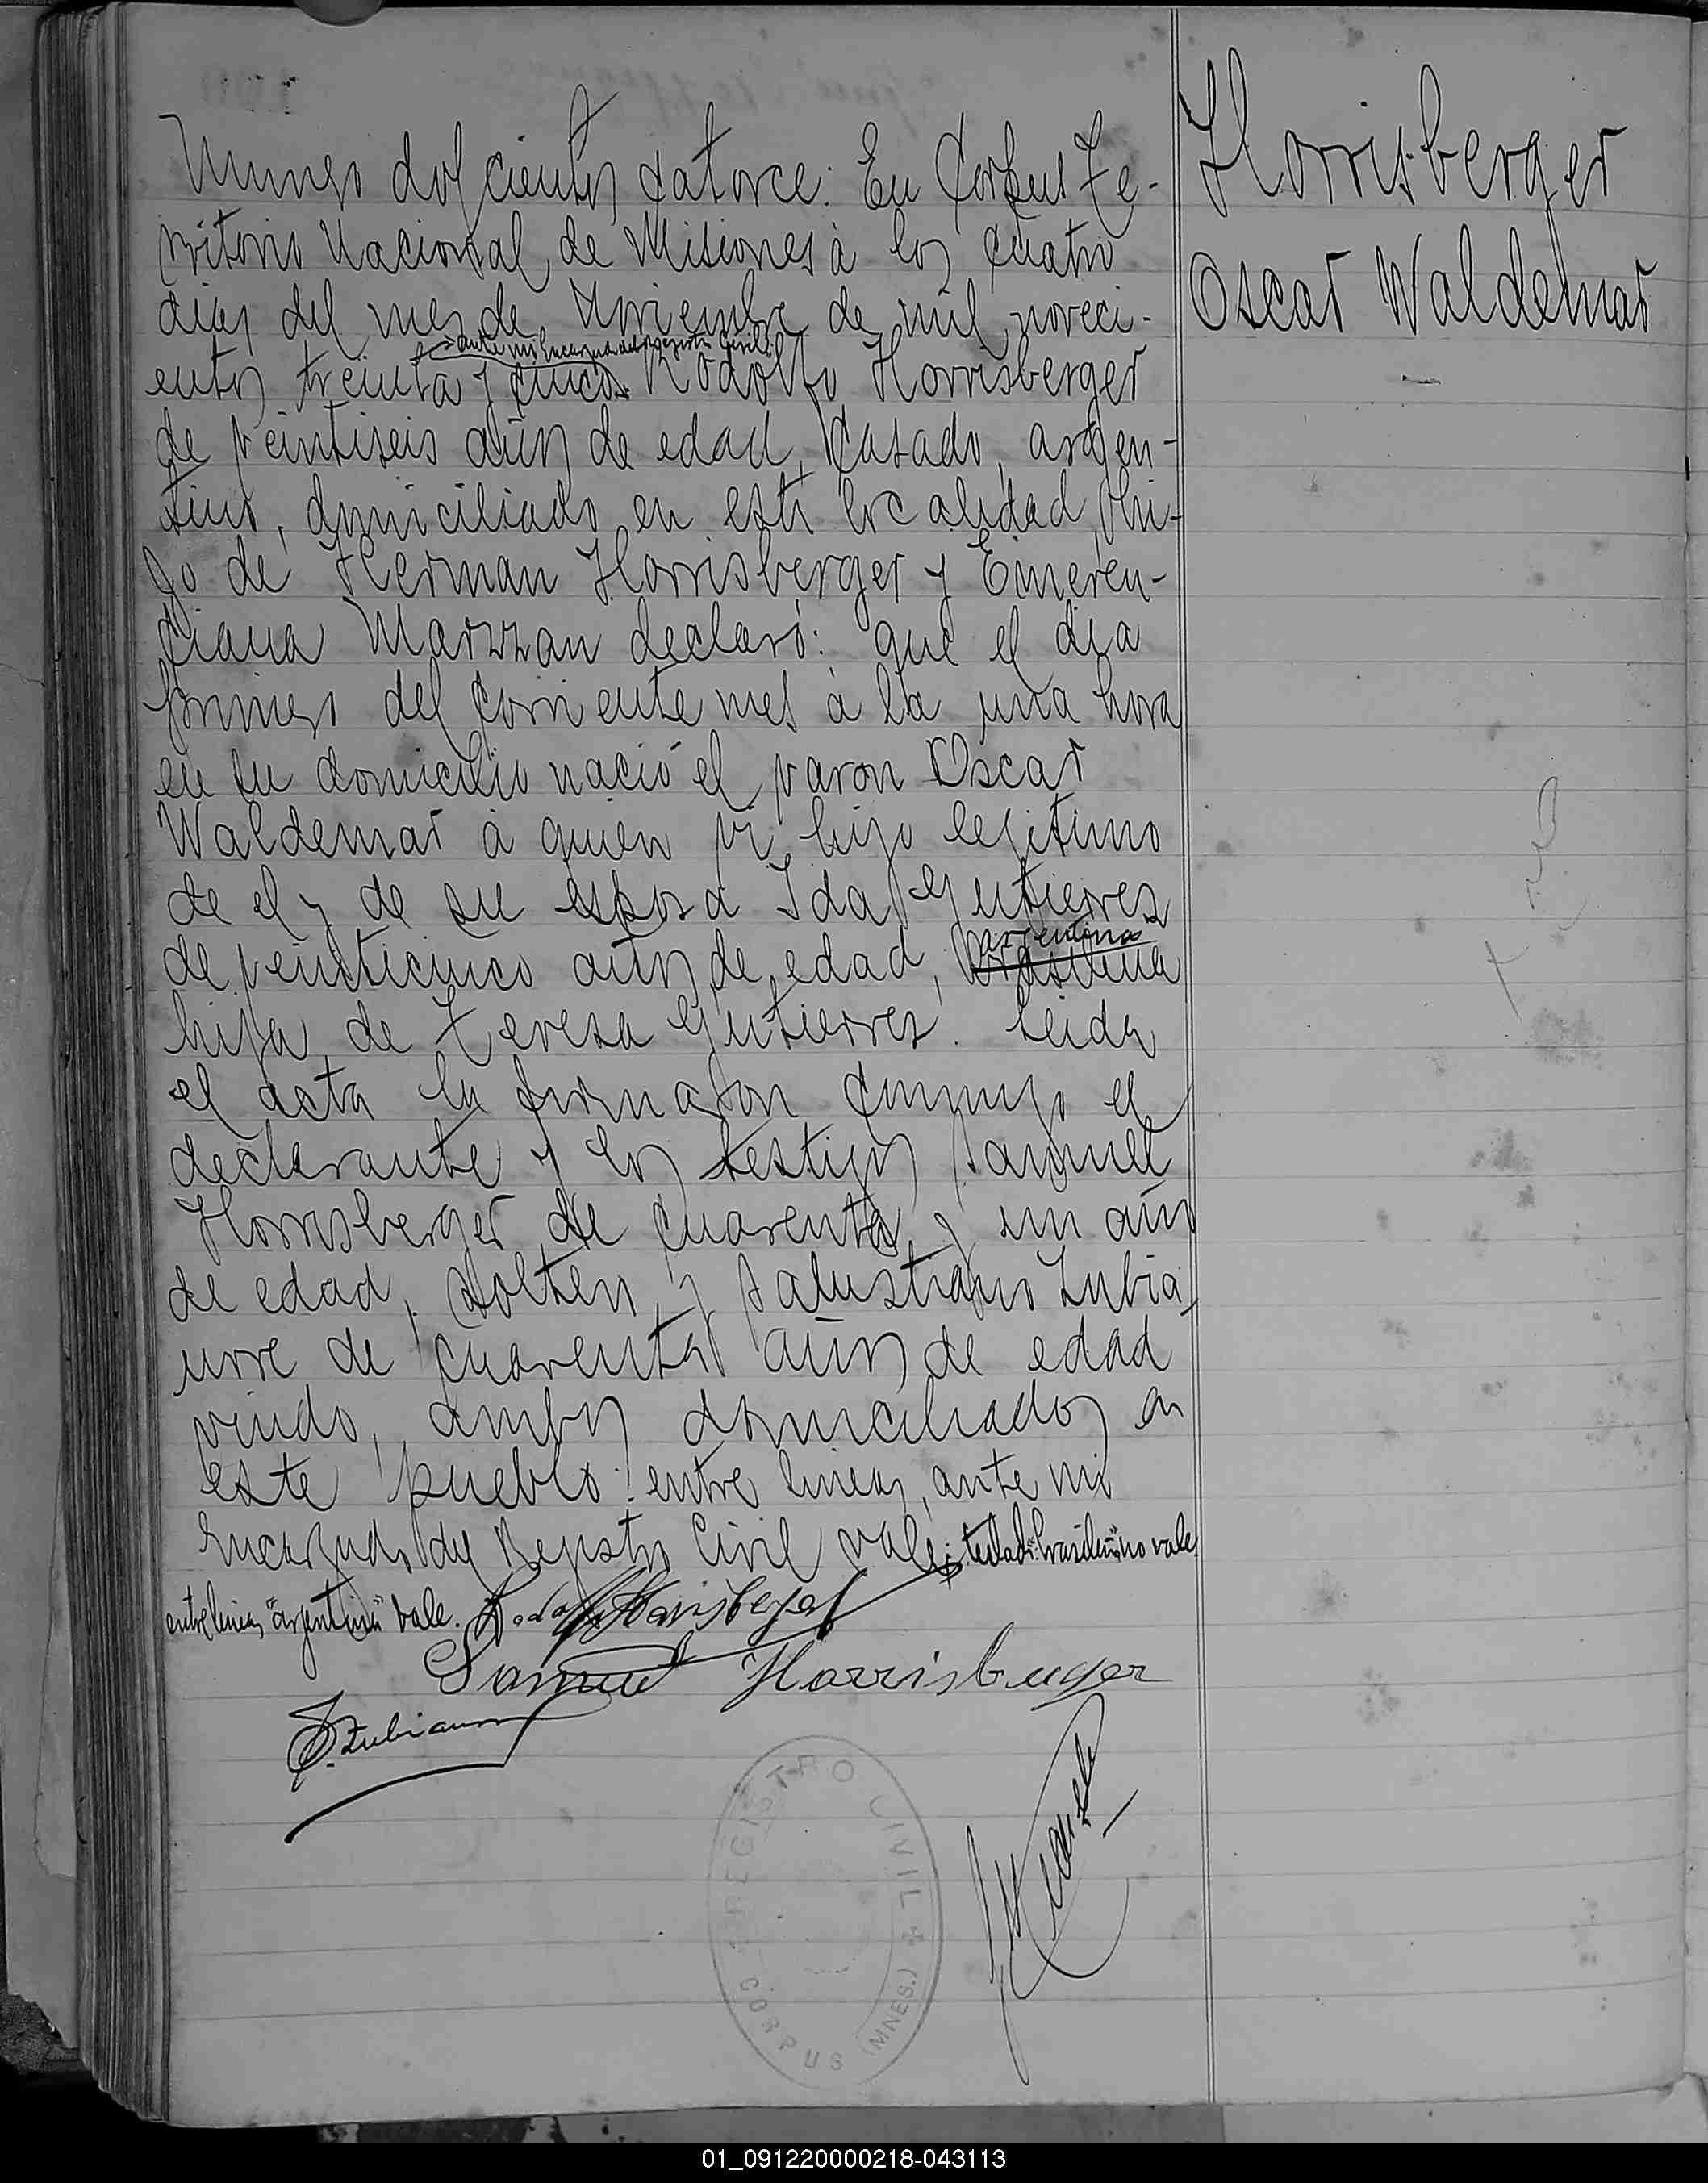 Horrisberger
Oscar Waldemar
Numero doscientos catorce: En Corpus Te-
rritorio Nacional de Misiones à los cuatro
dias del mes de Noviembre de mil noveci-
ante mi Encargado del Registro Civil
entos treinta y cinco Rodolfo Horrisberger
de veintiseis años de edad, casado, argen-
tino, domiciliado en esta localidad, hi-
jo de Herman Horrisberger y Emeren-
ciana Marzzan declaró: que el dia
primero del corriente mes à la una hora
en su domicilio nació el varon Oscar
Waldemar à quien vi hijo legitimo
de el y de su esposa Ida Gutierrez
argentina
de veinticinco años de edad, brasilena
hija de Teresa Gutierrez. Leida
el acta la firmaron conmigo el
declarante y los testigos Samuel
Horrisberger de cuarenta y un años
de edad, soltero, y Salustiano Zubia
urre de cuarenta años de edad
viudo, ambos domiciliados en
este pueblo: entre lineas, ante mi
Encargado del Registro Civil vale; testado: "brasilena" no vale,
entre lineas "argentina" vale. Rodolfo Horrisberger
Samuel Horrisberger
S. Zubiaurre
REGISTRO CIVIL
CORPUS (MNES.)
01_091220000218-043113